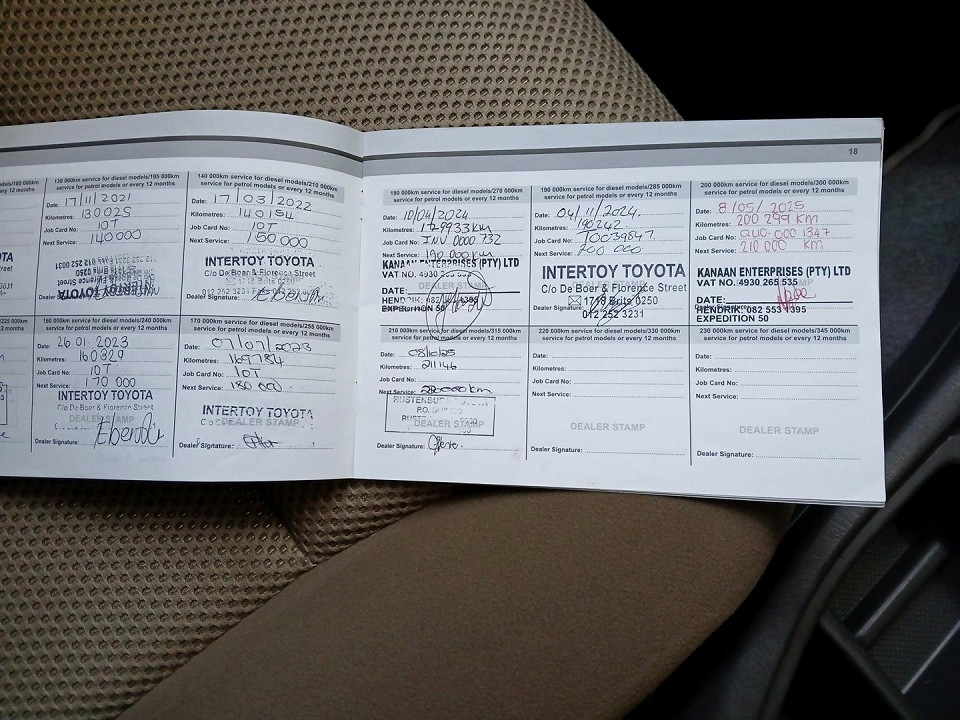 18
130 000km service for diesel models/195 000km
service for petrol models or every 12 months
Date: 17/11/2021
Kilometres: 130025
Job Card No: 10T
Next Service: 140 000
INTERTOY TOYOTA
Dealer Signature:
140 000km service for diesel models/210 000km
service for petrol models or every 12 months
Date: 17/03/2022
Kilometres: 140154
Job Card No: 10T
Next Service: 150 000
INTERTOY TOYOTA
C/o De Boer & Florence Street
Dealer Signature:
160 000km service for diesel models/240 000km
service for petrol models or every 12 months
Date: 26 01 2023
Kilometres: 160329
Job Card No: 10T
Next Service: 170 000
INTERTOY TOYOTA
C/o De Boer & Florence Street
DEALER STAMP
Dealer Signature:
170 000km service for diesel models/255 000km
service for petrol models or every 12 months
Date: 07/07/2023
Kilometres: 169784
Job Card No: 10T
Next Service: 180 000
INTERTOY TOYOTA
DEALER STAMP
Dealer Signature:
180 000km service for diesel models/270 000km
service for petrol models or every 12 months
Date: 10/04/2024
Kilometres: 179933 km
Job Card No: INV 0000 732
Next Service: 190 000 km
KANAAN ENTERPRISES (PTY) LTD
VAT NO. 4930 265 535
DATE:
EXPEDITION 50
190 000km service for diesel models/285 000km
service for petrol models or every 12 months
Date: 04/11/2024.
Kilometres: 190242
Job Card No: 10039847.
Next Service: 200 000
INTERTOY TOYOTA
C/o De Boer & Florence Street
1718 Brits 0250
Dealer Signature:
012 252 3231
200 000km service for diesel models/300 000km
service for petrol models or every 12 months
Date: 8/05/2025
Kilometres: 200 299 KM
Job Card No: QUO-000 1347
Next Service: 210 000 KM
KANAAN ENTERPRISES (PTY) LTD
VAT NO. 4930 265 535
DATE:
HENDRIK: 082 553 1395
EXPEDITION 50
210 000km service for diesel models/315 000km
service for petrol models or every 12 months
Date: 08/10/25
Kilometres: 211146
Job Card No:
Next Service:
DEALER STAMP
Dealer Signature:
220 000km service for diesel models/330 000km
service for petrol models or every 12 months
Date:
Kilometres:
Job Card No:
Next Service:
DEALER STAMP
Dealer Signature:
230 000km service for diesel models/345 000km
service for petrol models or every 12 months
Date:
Kilometres:
Job Card No:
Next Service:
DEALER STAMP
Dealer Signature: